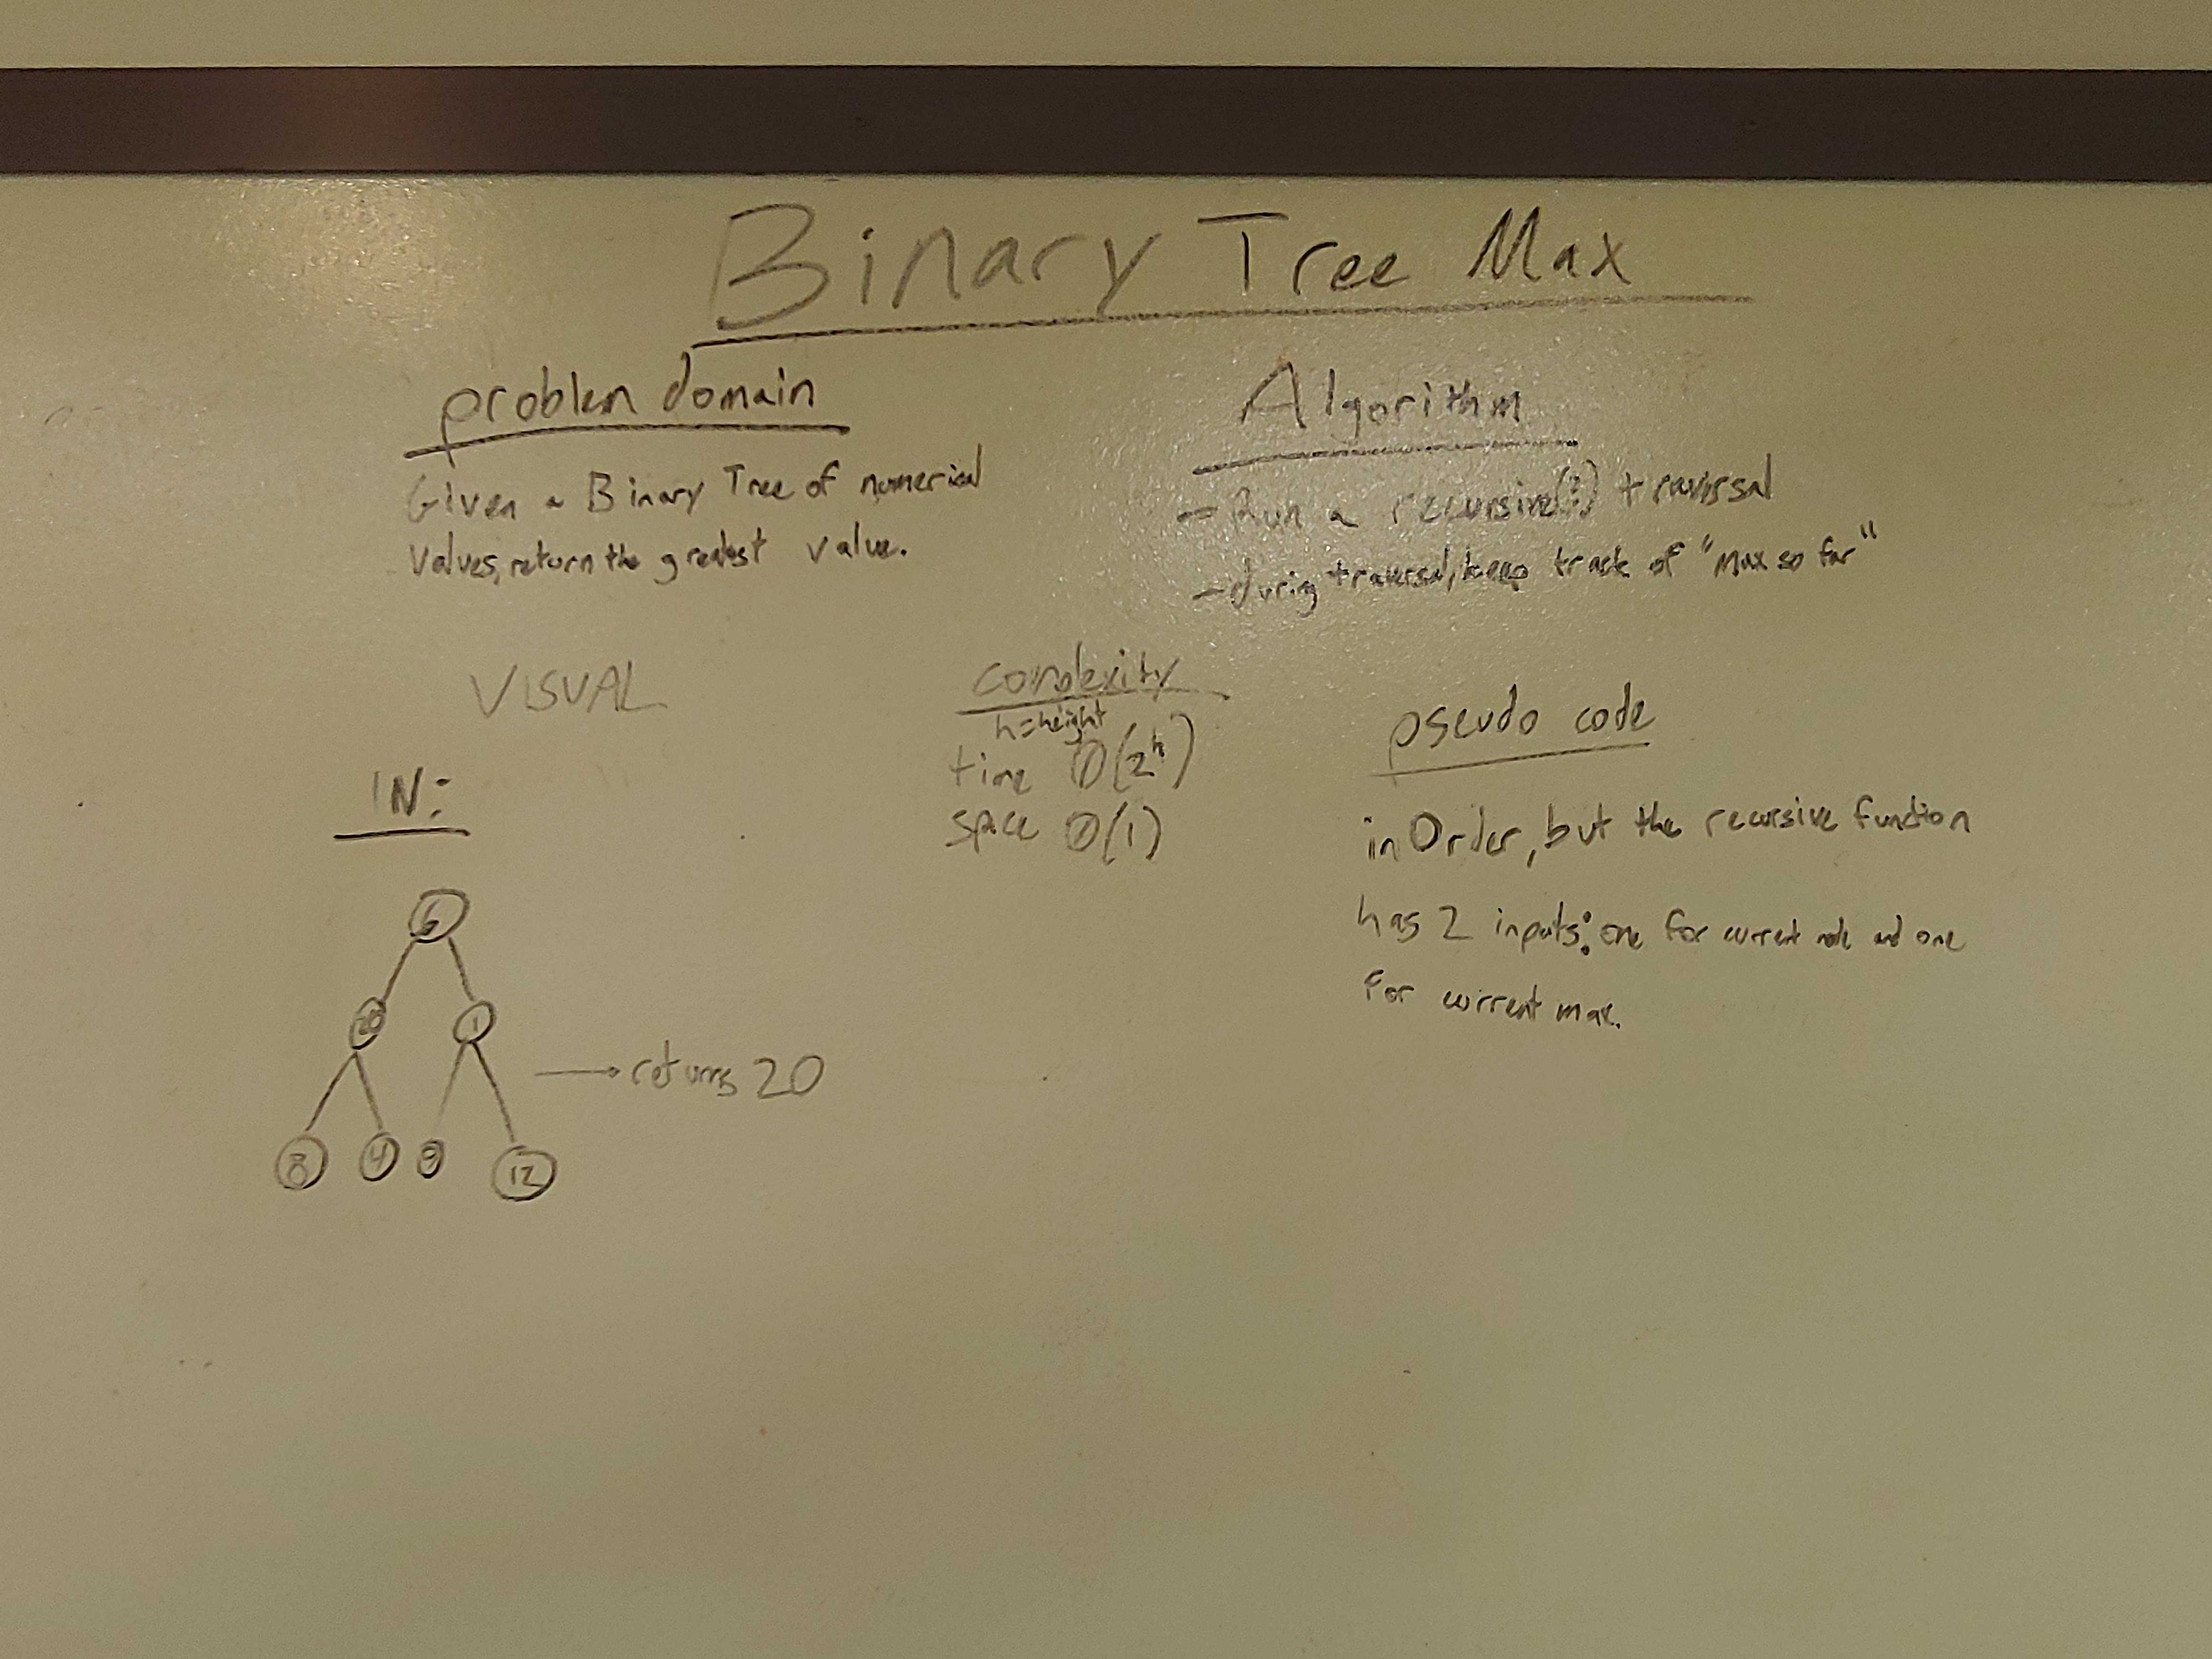 Binary Tree Max
problem domain
Given a Binary Tree of numerical
Values, return the greatest value.
Algorithm
- Run a recursive(?) traversal
- during traversal, keep track of "Max so far"
VISUAL
IN:
6
20 1
8 4 9 12
→ returns 20
complexity
h=height
time O(2^h)
space O(1)
pseudo code
inOrder, but the recursive function
has 2 inputs: one for current node and one
for current max.